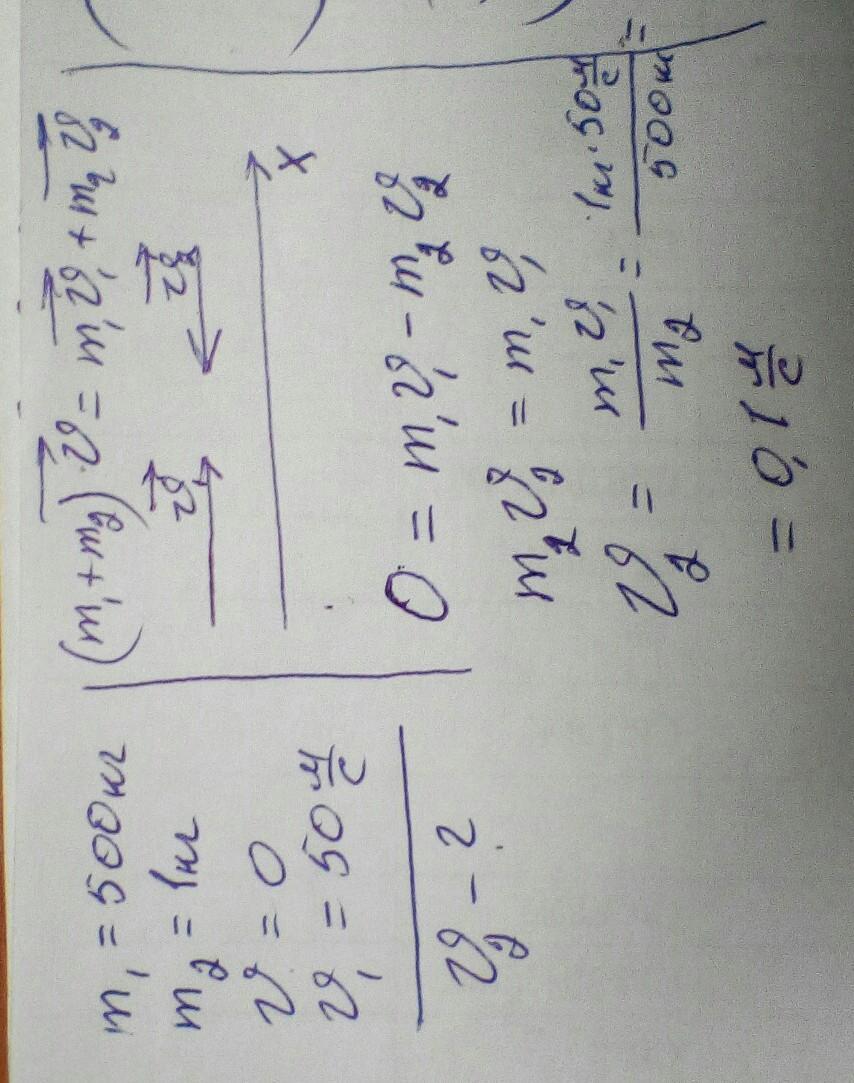 m₁ = 500кг
m₂ = 1кг
υ = 0
υ₁ = 50 м/с
υ₂ - ?
(m₁+m₂)υ = m₁υ₁ + m₂υ₂
υ υ₂
x
0 = m₁υ₁ - m₂υ₂
m₂υ₂ = m₁υ₁
υ₂ = m₁υ₁/m₂ = 1кг·50 м/с / 500кг =
= 0,1 м/с